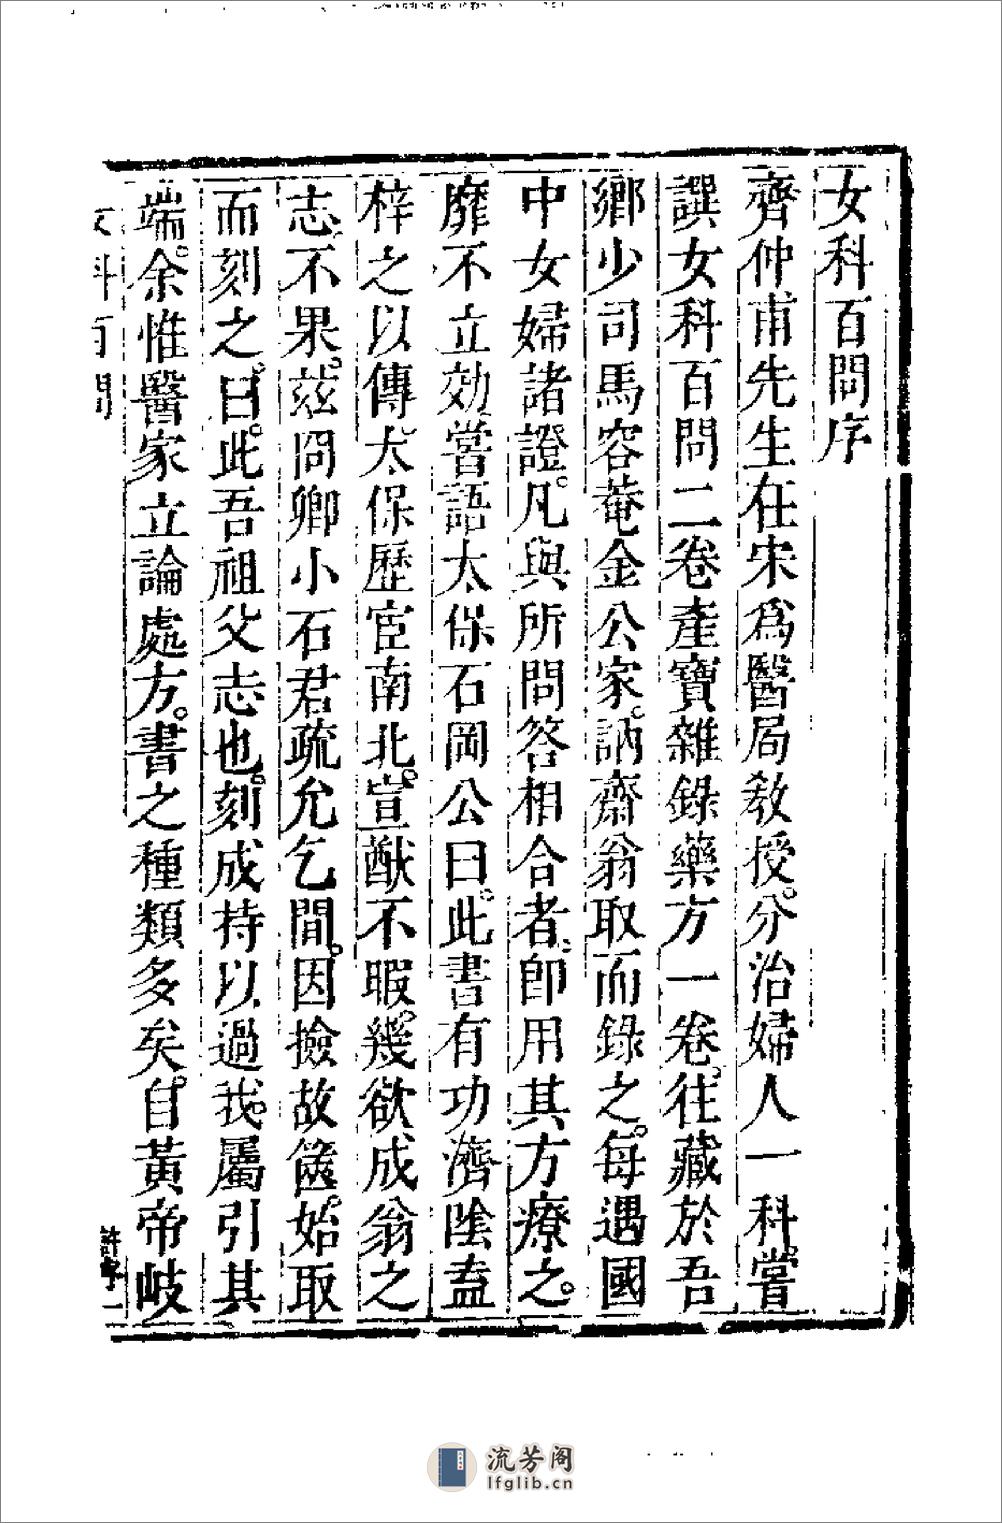 女科百問序
齊仲甫先生在宋為醫局敎授。分治婦人一科。嘗
譔女科百問二卷產寶雜錄藥方一卷。往藏於吾
鄉少司馬容菴金公家。訥齋翁取而錄之。每遇國
中女婦諸證。凡與所問答相合者。卽用其方療之。
靡不立効。嘗語太保石岡公曰。此書有功濟陰盍
梓之以傳。太保歷宦南北。宣猷不暇。幾欲成翁之
志。不果。茲冏卿小石君疏允乞間。因撿故篋。始取
而刻之。曰。此吾祖父志也。刻成持以過我。屬引其
端。余惟醫家立論處方。書之種類多矣。自黃帝岐
女科百問
許序一
流芳阁
lfglib.cn